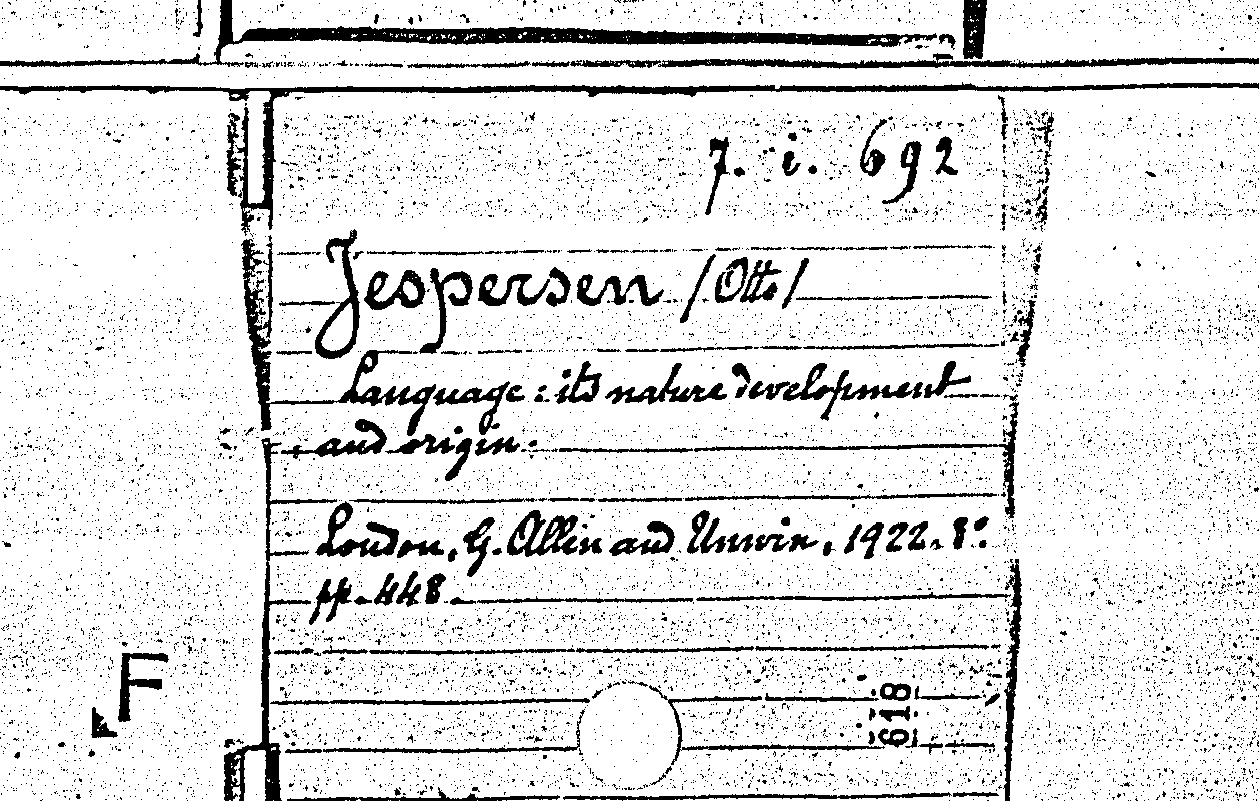 7. i. 692
Jespersen (Otto)
Language : its nature development
and origin.
London, G. Allen and Unwin, 1922. 8°.
pp. 448.
F
618